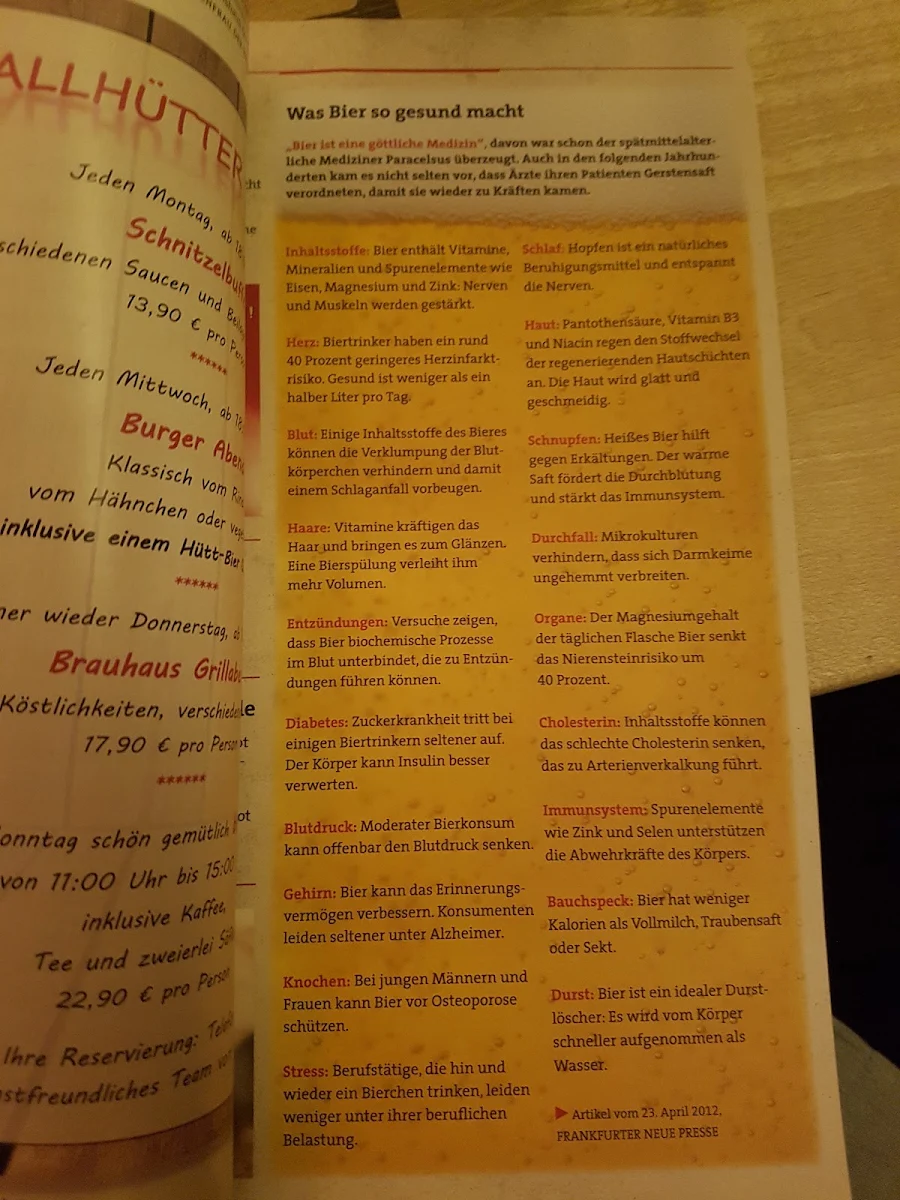 ALLHÜTTER
Jeden Montag, ab
Schnitzelbuf
schiedenen Saucen und
13,90 € pro
******
Jeden Mittwoch, ab 18
Burger Aben
Klassisch vom
vom Hähnchen oder
inklusive einem Hütt-Bier
******
wieder Donnerstag,
Brauhaus Grillab
Köstlichkeiten,
17,90 € pro
******
onntag schön gemütlich
von 11:00 Uhr bis 15:00
inklusive Kaffee,
Tee und zweierlei
22,90 € pro
Ihre Reservierung:
stfreundliches Team
Was Bier so gesund macht
„Bier ist eine göttliche Medizin“, davon war schon der spätmittelalter-
liche Mediziner Paracelsus überzeugt. Auch in den folgenden Jahrhun-
derten kam es nicht selten vor, dass Ärzte ihren Patienten Gerstensaft
verordneten, damit sie wieder zu Kräften kamen.
Inhaltsstoffe: Bier enthält Vitamine,
Mineralien und Spurenelemente wie
Eisen, Magnesium und Zink: Nerven
und Muskeln werden gestärkt.
Herz: Biertrinker haben ein rund
40 Prozent geringeres Herzinfarkt-
risiko. Gesund ist weniger als ein
halber Liter pro Tag.
Blut: Einige Inhaltsstoffe des Bieres
können die Verklumpung der Blut-
körperchen verhindern und damit
einem Schlaganfall vorbeugen.
Haare: Vitamine kräftigen das
Haar und bringen es zum Glänzen.
Eine Bierspülung verleiht ihm
mehr Volumen.
Entzündungen: Versuche zeigen,
dass Bier biochemische Prozesse
im Blut unterbindet, die zu Entzün-
dungen führen können.
Diabetes: Zuckerkrankheit tritt bei
einigen Biertrinkern seltener auf.
Der Körper kann Insulin besser
verwerten.
Blutdruck: Moderater Bierkonsum
kann offenbar den Blutdruck senken.
Gehirn: Bier kann das Erinnerungs-
vermögen verbessern. Konsumenten
leiden seltener unter Alzheimer.
Knochen: Bei jungen Männern und
Frauen kann Bier vor Osteoporose
schützen.
Stress: Berufstätige, die hin und
wieder ein Bierchen trinken, leiden
weniger unter ihrer beruflichen
Belastung.
Schlaf: Hopfen ist ein natürliches
Beruhigungsmittel und entspannt
die Nerven.
Haut: Pantothensäure, Vitamin B3
und Niacin regen den Stoffwechsel
der regenerierenden Hautschichten
an. Die Haut wird glatt und
geschmeidig.
Schnupfen: Heißes Bier hilft
gegen Erkältungen. Der warme
Saft fördert die Durchblutung
und stärkt das Immunsystem.
Durchfall: Mikrokulturen
verhindern, dass sich Darmkeime
ungehemmt verbreiten.
Organe: Der Magnesiumgehalt
der täglichen Flasche Bier senkt
das Nierensteinrisiko um
40 Prozent.
Cholesterin: Inhaltsstoffe können
das schlechte Cholesterin senken,
das zu Arterienverkalkung führt.
Immunsystem: Spurenelemente
wie Zink und Selen unterstützen
die Abwehrkräfte des Körpers.
Bauchspeck: Bier hat weniger
Kalorien als Vollmilch, Traubensaft
oder Sekt.
Durst: Bier ist ein idealer Durst-
löscher: Es wird vom Körper
schneller aufgenommen als
Wasser.
▶ Artikel vom 23. April 2012,
FRANKFURTER NEUE PRESSE